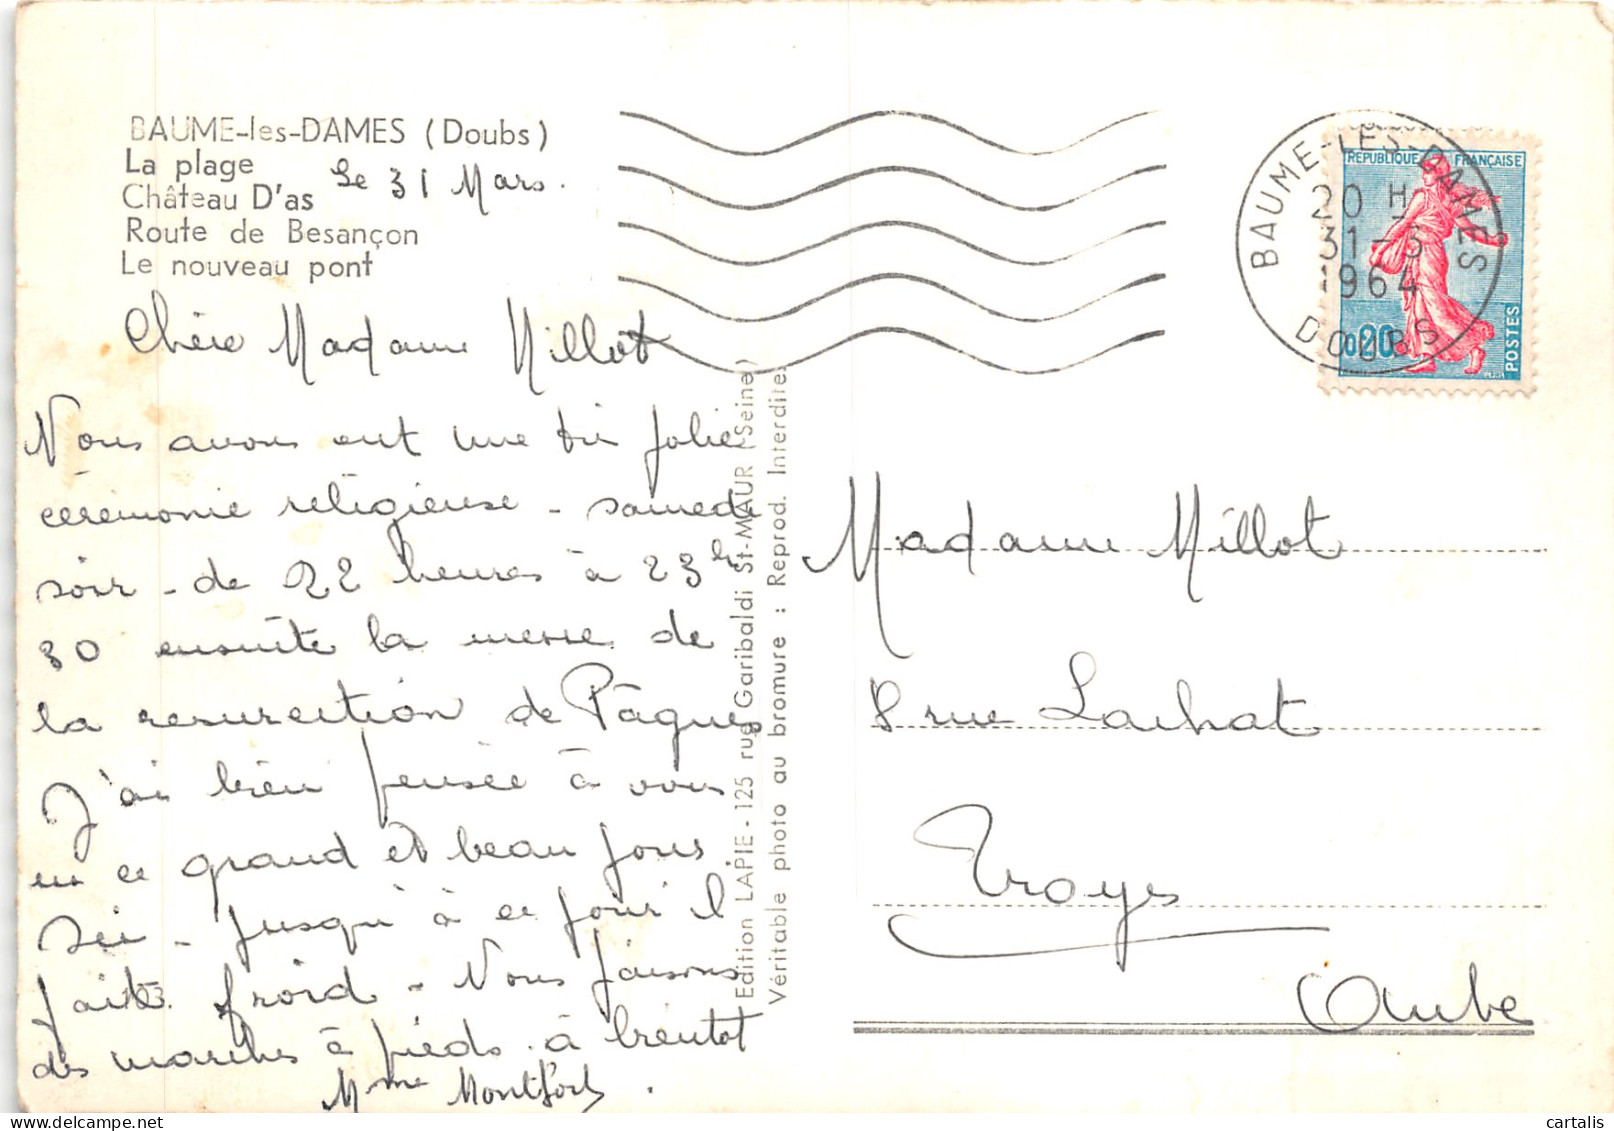 BAUME-les-DAMES (Doubs)
La plage
Château D'as
Route de Besançon
Le nouveau pont
Le 31 Mars.
Chère Madame Millot
Nous avons eut une très jolie
cérémonie religieuse - samedi
soir - de 22 heures à 23 h
30 ensuite la messe de
la resurection de Pâques
J'ai bien pensée à vous
en ce grand et beau jours
- jusqu'à ce jour il
faite froid - Nous faisons
des marches à pieds. à bientot
Mme Montfort.
Edition LAPIE - 125 rue Garibaldi St-MAUR (Seine)
Véritable photo au bromure : Reprod. Interdite
BAUME-LES-DAMES
20 H
31-3
1964
DOUBS
REPUBLIQUE FRANÇAISE
0,20
POSTES
Madame Millot
8 rue Lachat
Troyes
Aube
cartalis